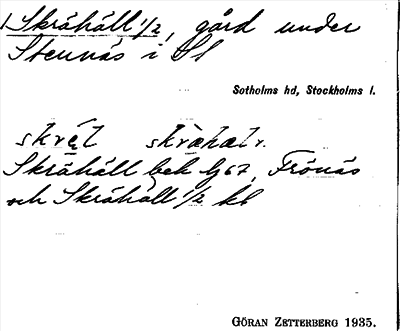 Skråhäll 1/2, gård under
Stennäs i Sl
Sotholms hd, Stockholms l.
Skråhäll bek G67, Frönäs
och Skråhäll 1/2 kl
GÖRAN ZETTERBERG 1935.